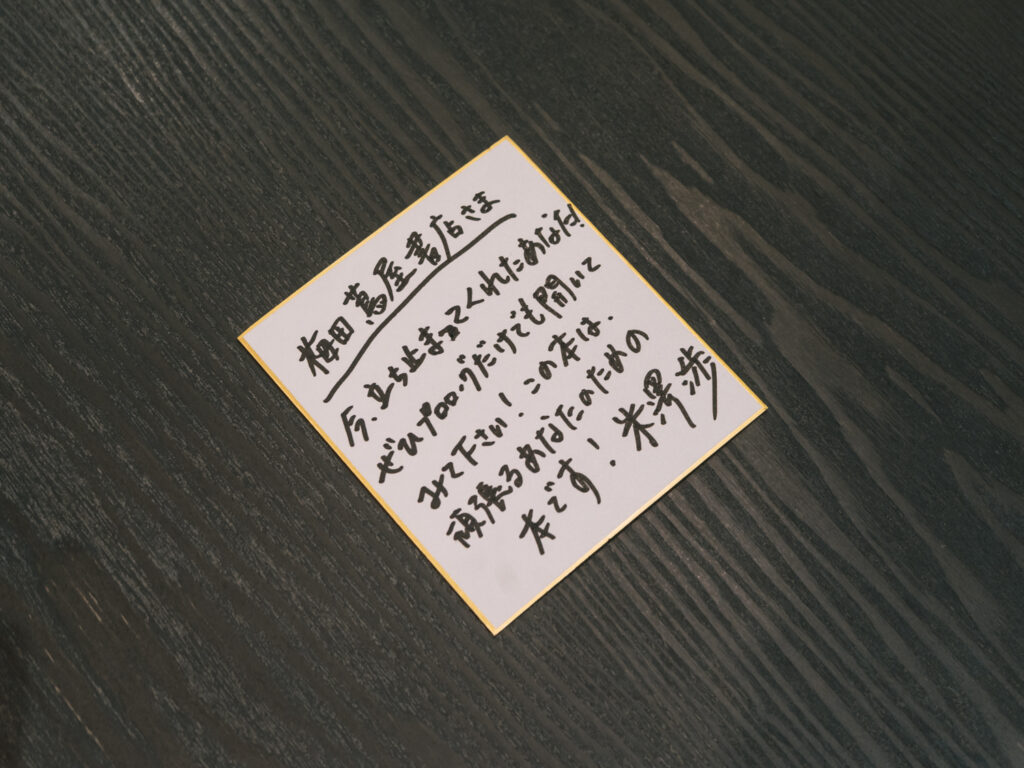 梅田 蔦屋書店さま
今、立ち止まってくれたあなた!
ぜひプロローグだけでも開いて
みて下さい!この本は、
頑張るあなたのための
本です! 米澤渉